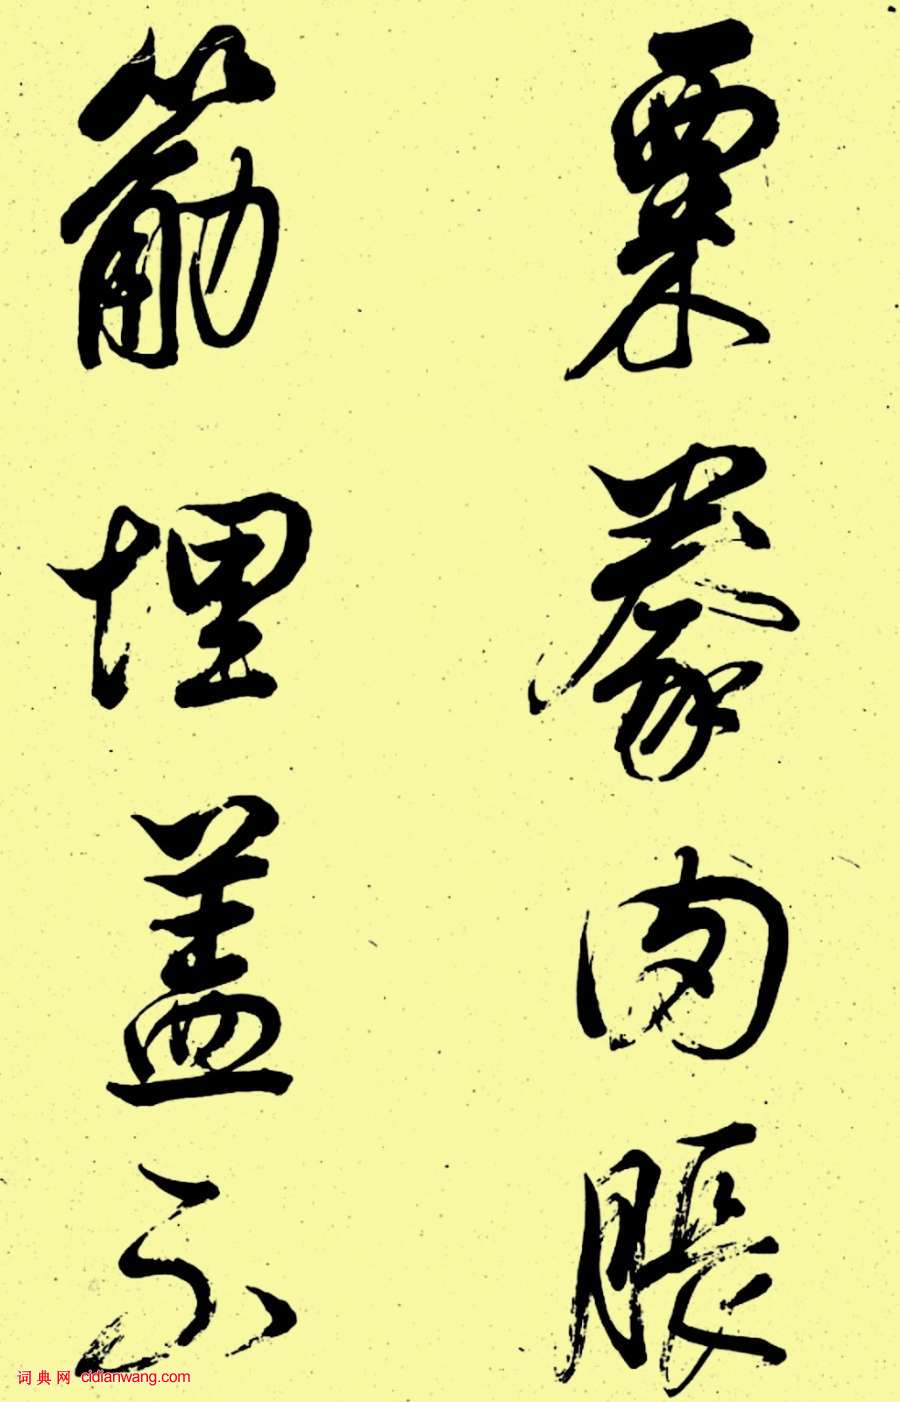 粟豢肉脹
筋埋蓋不
词典网 cidianwang.com